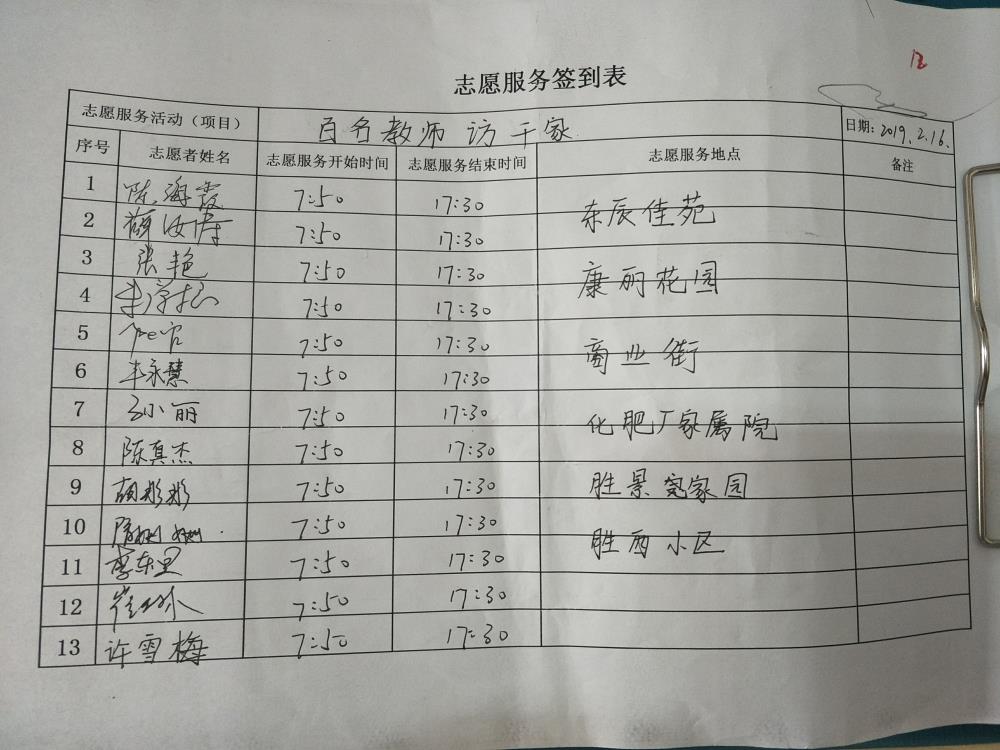 志愿服务签到表
志愿服务活动（项目） 百名教师访千家 日期：2019.2.16.
序号 志愿者姓名 志愿服务开始时间 志愿服务结束时间 志愿服务地点 备注
1 陈海霞 7:50 17:30
东辰佳苑
2 7:50 17:30
3 张艳 7:50 17:30
康丽花园
4 7:50 17:30
5 7:50 17:30
商业街
6 永慧 7:50 17:30
7 小丽 7:50 17:30
化肥厂家属院
8 陈真杰 7:50 17:30
9 胡彬彬 7:50 17:30
胜景家园
10 7:50 17:30
胜西小区
11 李东 7:50 17:30
12 崔 7:50 17:30
13 许雪梅 7:50 17:30